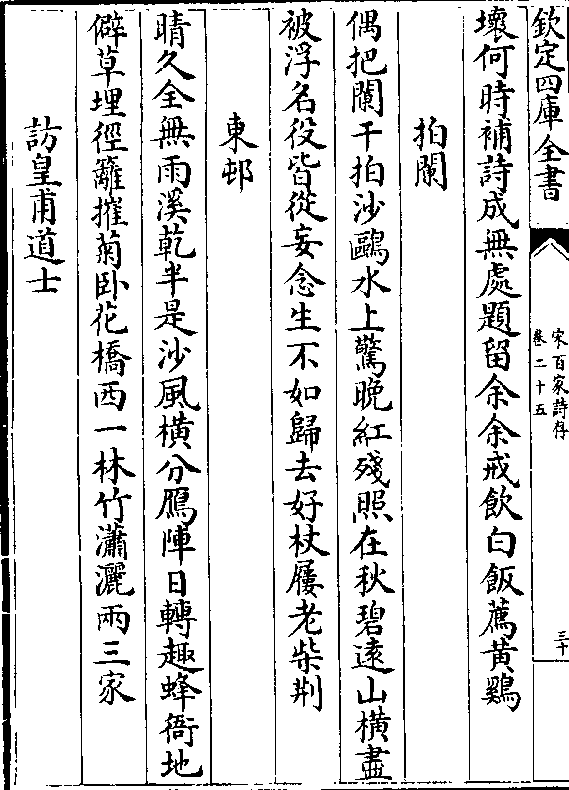 欽定四庫全書
宋百家詩存
卷二十五
三十
壞何時補詩成無處題留余余戒飲白飯薦黃鷄
拍闌
偶把闌干拍沙鷗水上驚晚紅殘照在秋碧遠山橫盡
被浮名役皆從妄念生不如歸去好杖屨老柴荆
東邨
晴久全無雨溪乾半是沙風橫分鴈陣日轉趣蜂衙地
僻草埋徑籬摧菊卧花橋西一林竹瀟灑兩三家
訪皇甫道士